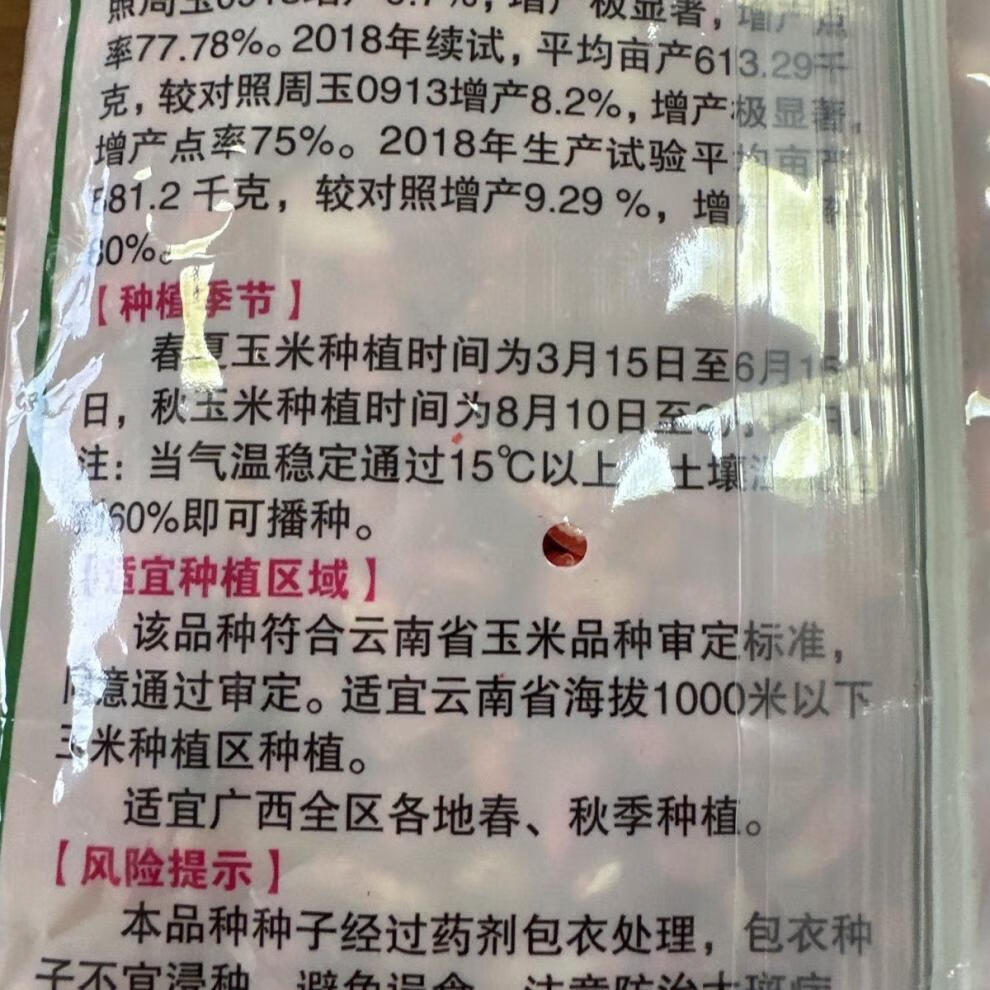 照周玉0913增产8.7%，增产极显著，增产点
率77.78%。2018年续试，平均亩产613.29千
克，较对照周玉0913增产8.2%，增产极显著，
增产点率75%。2018年生产试验平均亩产
581.2 千克，较对照增产9.29 %，增
80%。
【种植季节】
春夏玉米种植时间为3月15日至6月15
日，秋玉米种植时间为8月10日至
注：当气温稳定通过15℃以上 土壤
60%即可播种。
【适宜种植区域】
该品种符合云南省玉米品种审定标准，
同意通过审定。适宜云南省海拔1000米以下
玉米种植区种植。
适宜广西全区各地春、秋季种植。
【风险提示】
本品种种子经过药剂包衣处理，包衣种
子不宜浸种，避免误食，注意防治大斑病